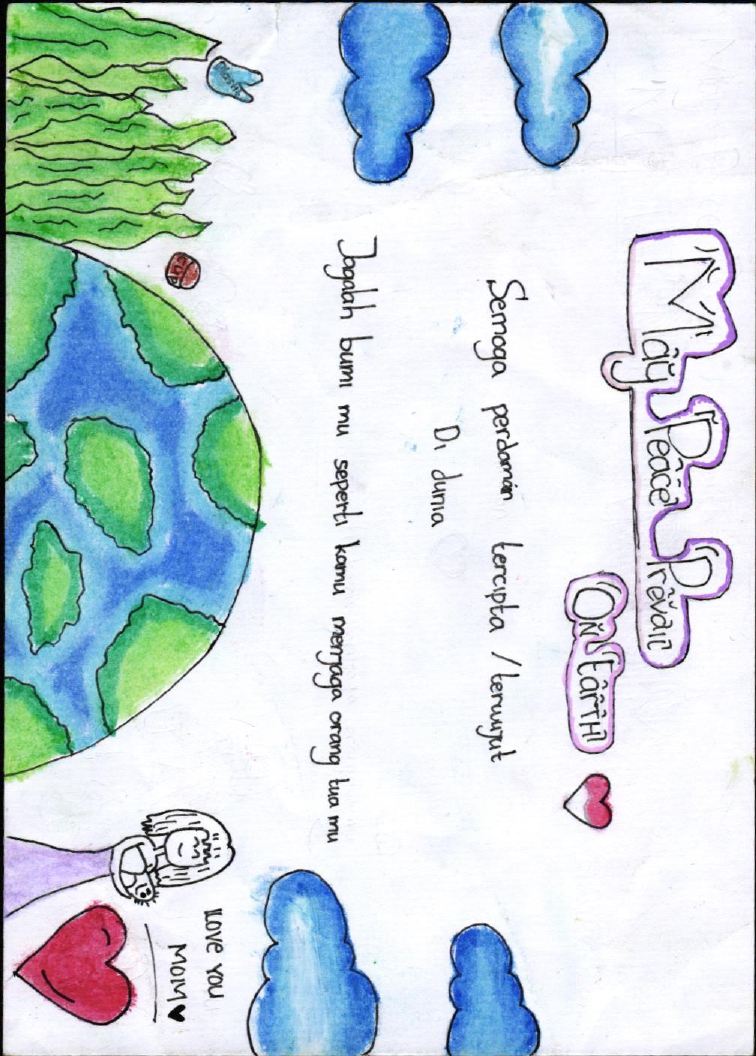 May Peace Prevail
On EartH
Semoga perdamain tercipta / terwujut
Di dunia
Jagalah bumi mu seperti kamu menjaga orang tua mu
I LOVE YOU
MOM ♥